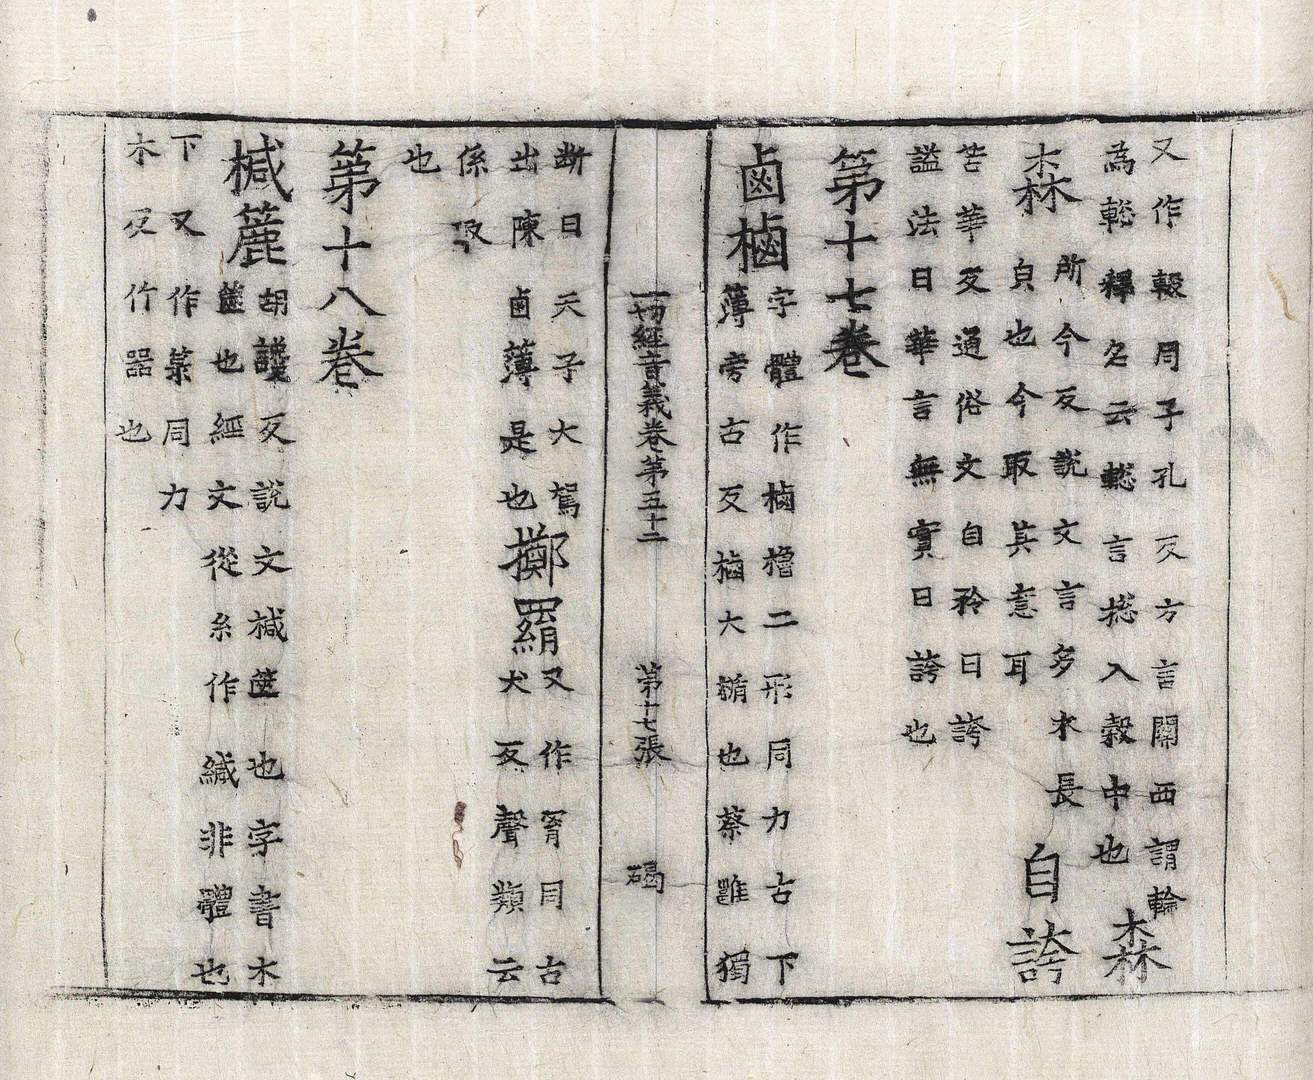 又作轂同子孔反方言關西謂輪
為輚釋名云輚言揔入轂中也 森
森 所今反說文言多木長
皃也今取其意耳 自誇
苦華反通俗文自矜曰誇
謚法曰華言無實曰誇也
第十七卷
鹵樐 字體作樐櫓二形同力古下
薄旁古反樐大楯也蔡邕獨
一切經音義卷第五十二 第十七張 碣
断曰天子大駕
出陳鹵薄是也
擲羂 又作罥同古
犬反聲類云
係取
也
第十八卷
椷簏 胡讒反說文椷篋也字書木
篋也經文從糸作緘非體也
下又作箓同力
木反竹器也